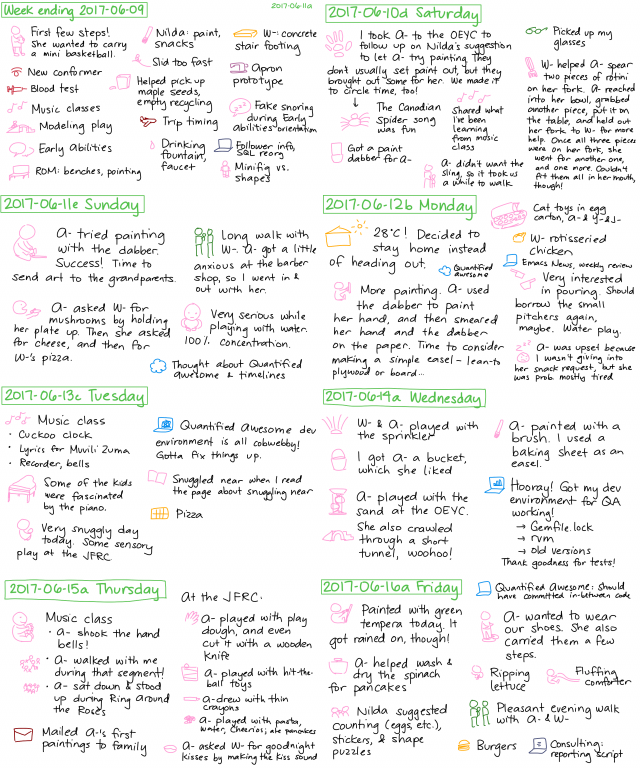 Week ending 2017-06-09
2017-06-11a
First few steps!
She wanted to carry
a mini basketball.
New conformer
Blood test
Music classes
Modeling play
Early Abilities
ROM: benches, pointing
Nilda: paint,
snacks
Slid too fast
Helped pick up
maple seeds,
empty recycling
Trip timing
Drinking
fountain,
faucet
W-: concrete
stair footing
Apron
prototype
Fake snoring
during Early
abilities orientation
Follower info,
SQL reorg
Minifig vs.
shapes
2017-06-10d Saturday
I took A- to the OEYC to
follow up on Nilda's suggestion
to let A- try painting. They
don't usually set paint out, but they
brought out some for her. We made it
to circle time, too!
The Canadian
Spider song
was fun
Shared what
I've been
learning
from music
class
Got a paint
dabber for A-
A- didn't want the
sling, so it took us
a while to walk.
Picked up my
glasses
W- helped A- spear
two pieces of rotini
on her fork. A- reached
into her bowl, grabbed
another piece, put it on
the table, and held out
her fork to W- for more
help. Once all three pieces
were on her fork, she
went for another one,
and one more. Couldn't
fit them all in her mouth,
though!
2017-06-11e Sunday
A- tried painting
with the dabber.
Success! Time to
send art to the grandparents.
A- asked W- for
mushrooms by holding
her plate up. Then she asked
for cheese, and then for
W-'s pizza.
Long walk with
W-. A- got a little
anxious at the barber
shop, so I went in &
out with her.
Very serious while
playing with water.
100% concentration.
Thought about Quantified
Awesome & timelines
2017-06-12b Monday
28°C! Decided to
stay home instead
of heading out.
Quantified
Awesome
More painting. A- used
the dabber to paint
her hand, and then smeared
her hand and the dabber
on the paper. Time to consider
making a simple easel - lean-to
plywood or board...
Cat toys in egg
carton, A- & Y- & J-
W- rotisseried
chicken
Emacs News, weekly review
Very interested
in pouring. Should
borrow the small
pitchers again,
maybe. Water play.
A- was upset because
I wasn't giving into
her snack request, but she
was prob. mostly tired
2017-06-13c Tuesday
Music class
• Cuckoo clock
• Lyrics for Muvili Zuma
• Recorder, bells
Some of the kids
were fascinated
by the piano.
Very snuggly day
today. Some sensory
play at the JFRC
Quantified Awesome dev
environment is all cobwebby!
Gotta fix things up.
Snuggled near when I read
the page about snuggling near
Pizza
2017-06-14a Wednesday
W- & A- played with
the sprinkler
I got A- a bucket,
which she liked
A- played with the
sand at the OEYC.
She also crawled
through a short
tunnel, woohoo!
A- painted with a
brush. I used a
baking sheet as an
easel.
Hooray! Got my dev
environment for QA
working!
→ Gemfile.lock
→ rvm
→ Old versions
Thank goodness for tests!
2017-06-15a Thursday
Music class
• A- shook the hand
bells!
• A- walked with me
during that segment!
• A- sat down & stood
up during Ring Around
the Roses
Mailed A-'s first
paintings to family
At the JFRC:
A- played with play
dough, and even
cut it with a wooden
knife
A- played with hit-the-
ball toys
A- drew with thin
crayons
A- played with pasta,
water, Cheerios; ate pancakes
A- asked W- for goodnight
kisses by making the kiss sound
2017-06-16a Friday
Painted with green
tempera today. It
got rained on, though!
A- helped wash &
dry the spinach
for pancakes
Nilda suggested
counting (eggs, etc.),
stickers, & shape
puzzles
Quantified Awesome: Should
have committed in-between code
A- wanted to wear
our shoes. She also
carried them a few
steps.
Ripping
lettuce
Fluffing
comforter
Pleasant evening walk
with A- & W-
Burgers
Consulting:
reporting script